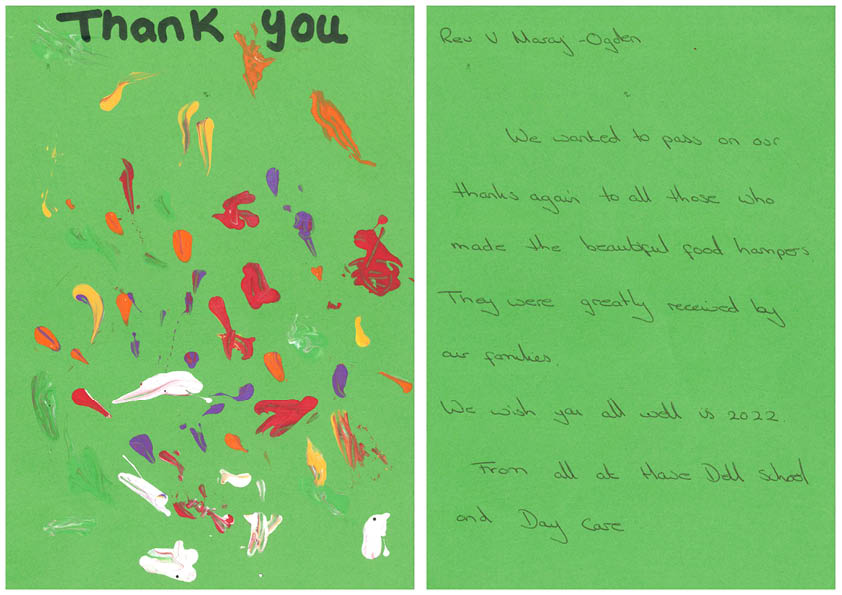 Thank you
Rev V Maraj-Ogden
We wanted to pass on our
thanks again to all those who
made the beautiful food hampers
They were greatly received by
our families.
We wish you all well is 2022.
From all at Hawe Dell School
and Day Care